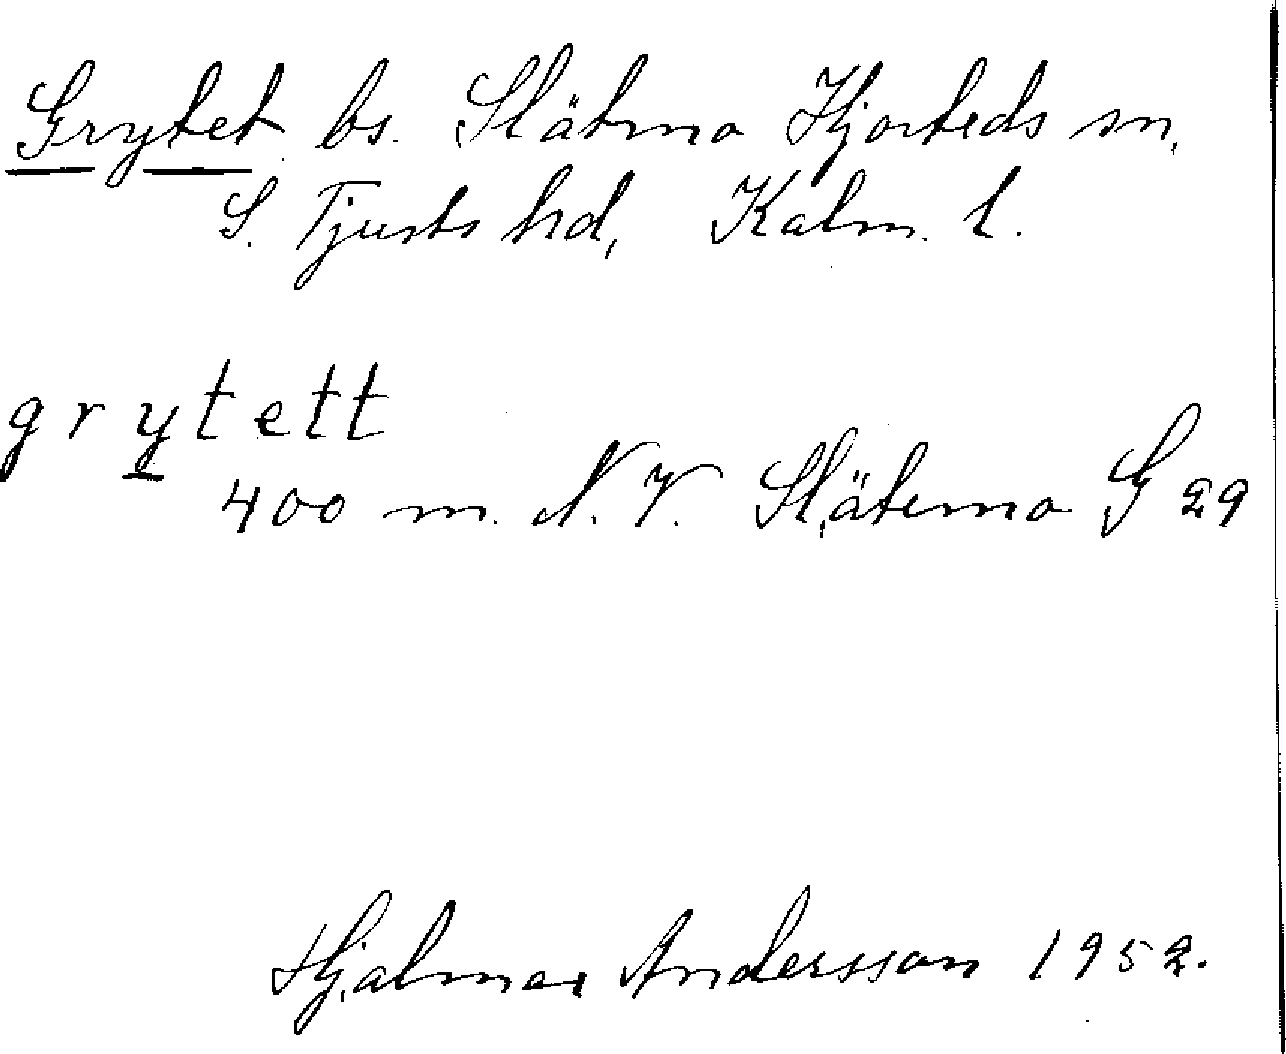 Grytet bs. Slätmo Hjorteds sn,
S. Tjusts hd, Kalm. l.
grytett
400 m. N. V. Slätemo G 29
Hjalmar Andersson 1952.